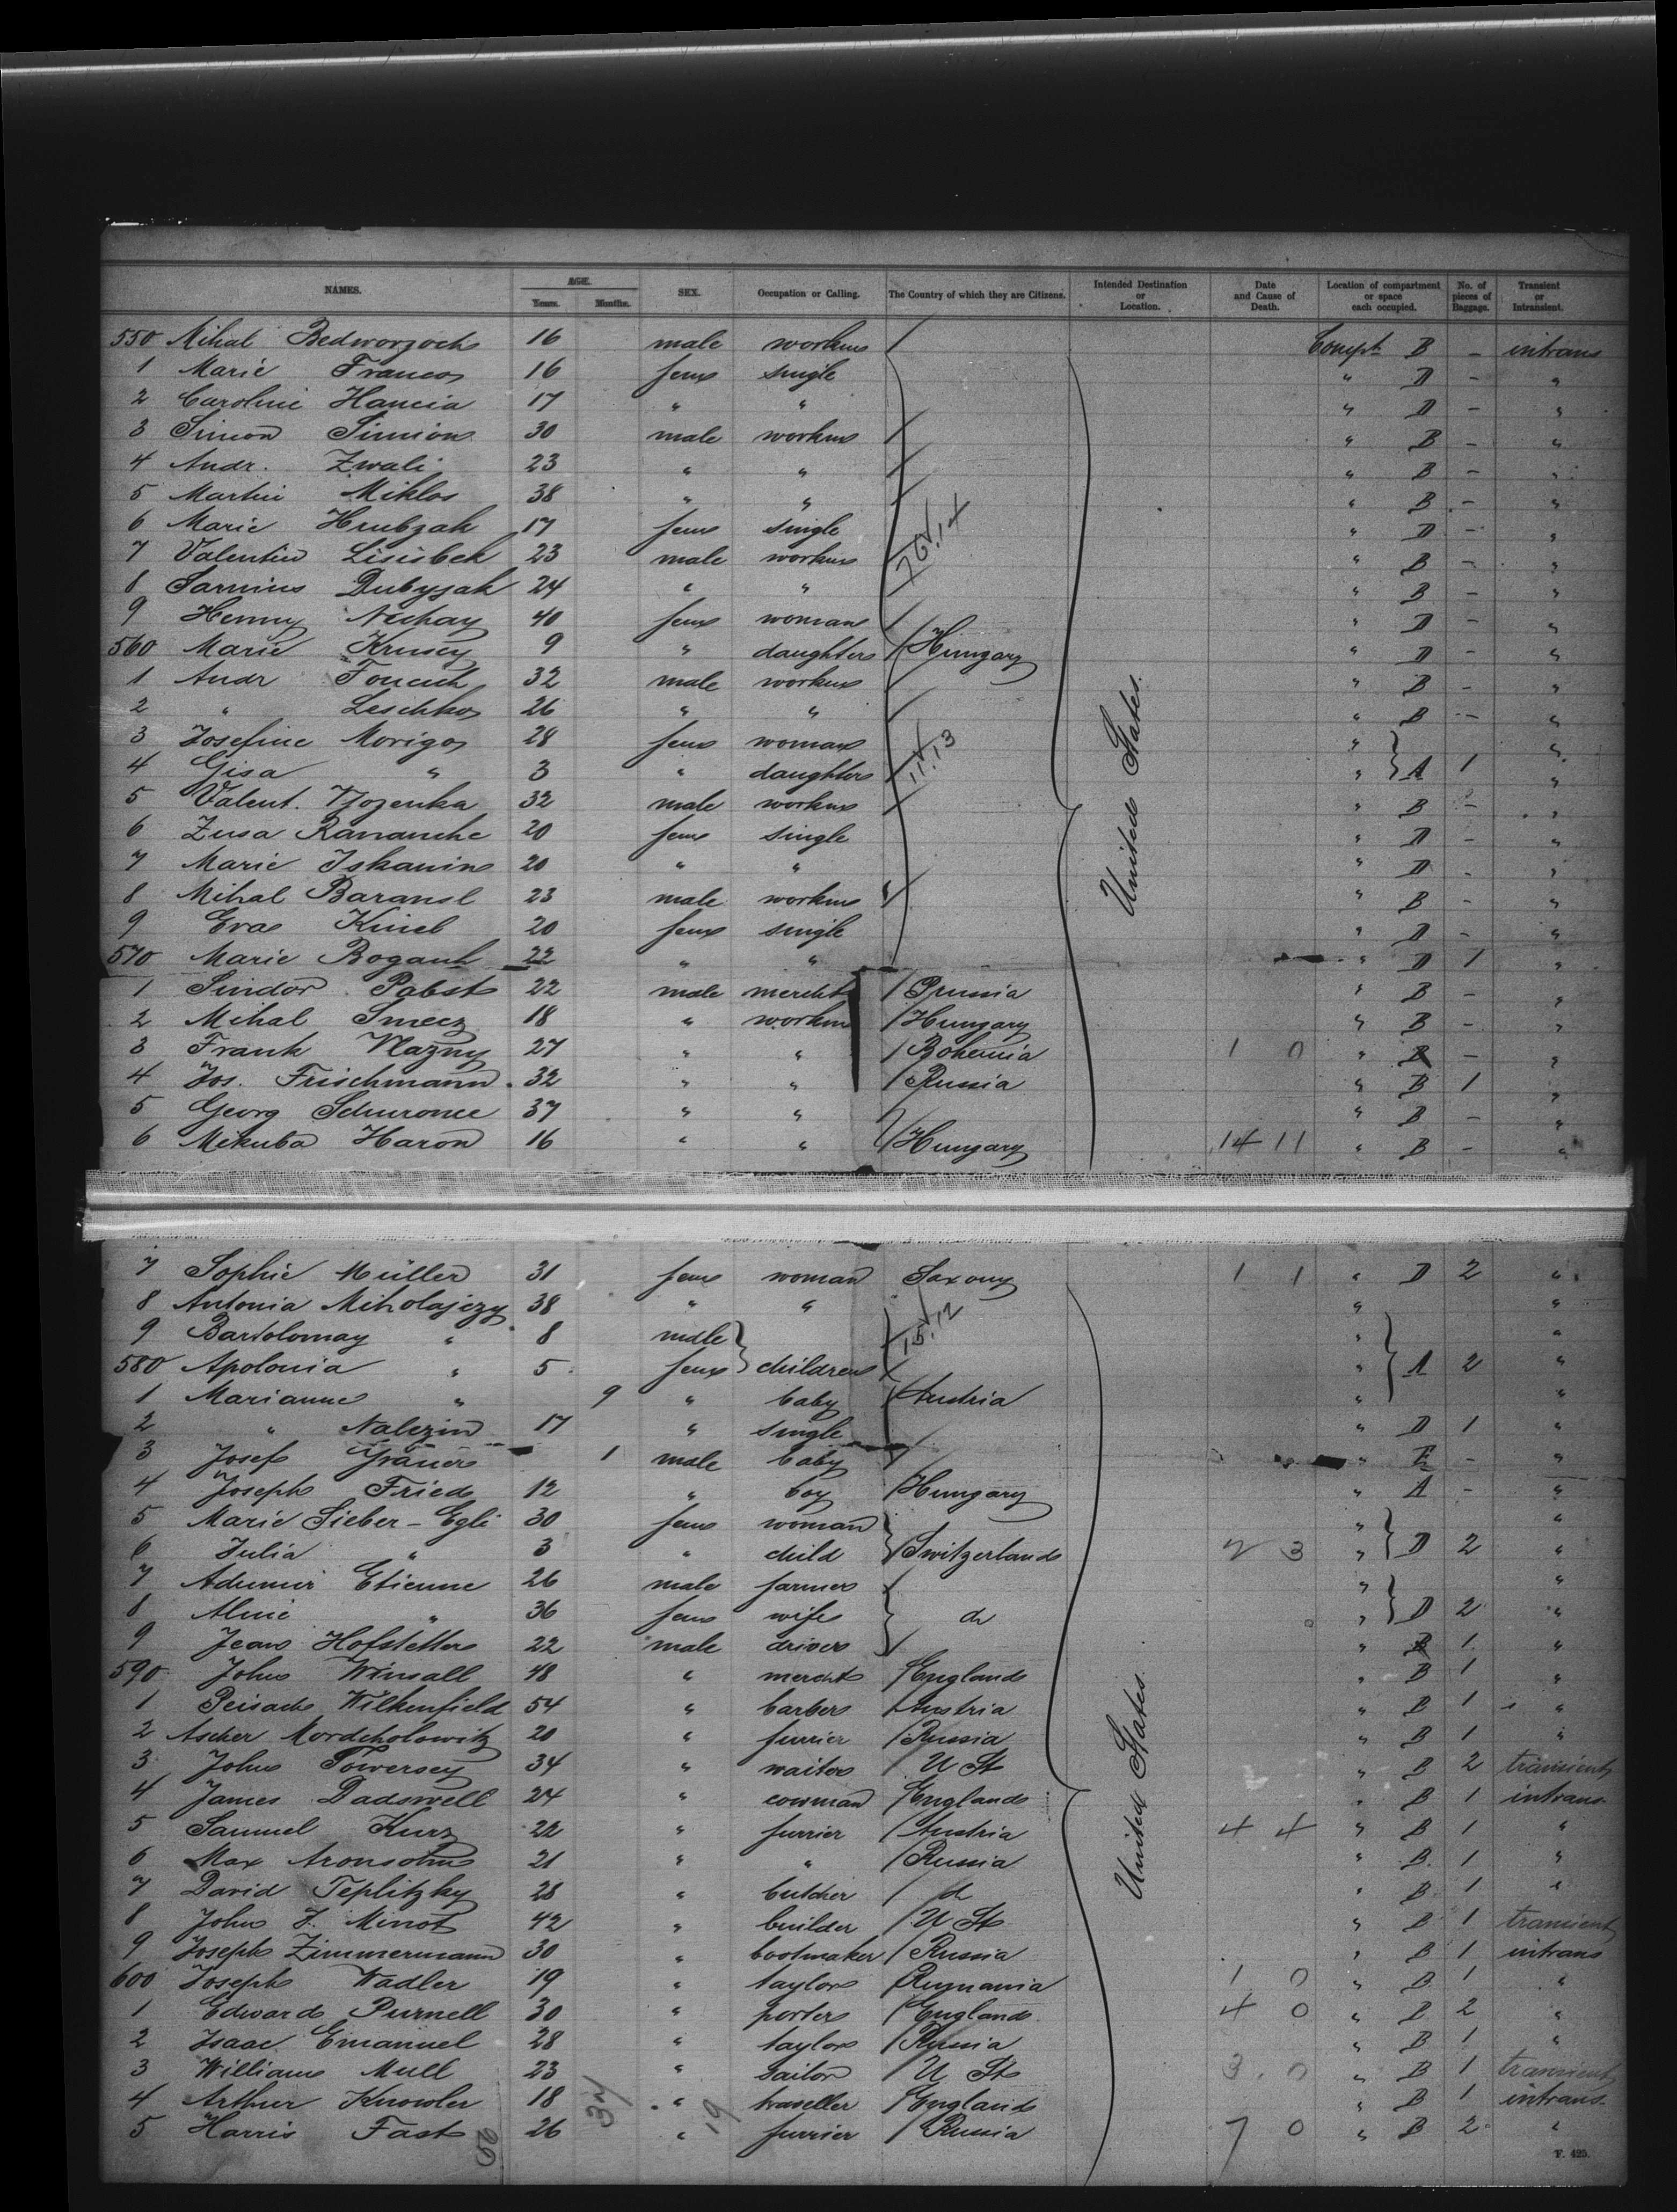 NAMES. AGE. Years. Months. SEX. Occupation or Calling. The Country of which they are Citizens. Intended Destination or Location. Date and Cause of Death. Location of compartment or space each occupied. No. of pieces of Baggage. Transient or Intransient.
550 Mihal Bedworzoch 16 male workm / Compt B - intrans
1 Marie Francos 16 fem single " D - "
2 Caroline Hancia 17 " " " D - "
3 Simon Simion 30 male workm / " B - "
4 Andr. Zwali 23 " " / " B - "
5 Martin Miklos 38 " " / " B - "
6 Marie Hrubzak 17 fem single " D - "
7 Valentin Lisisbek 23 male workm / " B - "
8 Dubyzak 24 " " / " B - "
9 Henny Nechay 40 fem woman / " D - "
560 Marie Krusey 9 " daughter / Hungary " D - "
1 Andr 32 male workm / " B - "
2 " Leschko 26 " " / " B - "
3 Josefine Morigo 28 fem woman / " "
4 Gisa " 3 " daughter / 11.13 " A 1 "
5 Valent. 32 male workm / " B - "
6 Zusa 20 fem single " D - "
7 Marie Iskanin 20 " " " D - "
8 Mihal Baransl 23 male workm / " B - "
9 Eva Kineb 20 fem single " D - "
570 Marie Boganh 22 " " " D 1 "
1 Sindor Pabst 22 male mercht / Prussia " B - "
2 Mihal Smecz 18 " workm / Hungary " B - "
3 Frank Vlazny 27 " " / Bohemia 1 0 " B - "
4 Jos. Frischmann 32 " " / Russia " B 1 "
5 Georg Schuronce 37 " " / " B - "
6 Mikuba Haron 16 " " / Hungary 14 11 " B - "
United States.
7 Sophie Müller 31 fem woman Saxony 1 1 " D 2 "
8 Antonia Miholajczy 38 " " " "
9 Bartolomay " 8 male / 15.12 " "
580 Apolonia " 5 fem children / " A 2 "
1 Marianne " 9 " baby / Austria " "
2 " Nalezin 17 " single " D 1 "
3 Josef Gräuer 1 male baby / " E - "
4 Joseph Fried 12 " boy / Hungary " A - "
5 Marie Sieber-Egli 30 fem woman " "
6 Julia " 3 " child / Switzerland 2 3 " D 2 "
7 Etienne 26 male farmer / " "
8 Aline " 36 fem wife do " D 2 "
9 Jean Hofstetter 22 male driver / " B 1 "
590 John Winsall 48 " mercht / England " B 1 "
1 Peisach Wilkenfield 54 " barber / Austria " B 1 "
2 Ascher Mordcholowitz 20 " furrier / Russia " B 1 "
3 John Towersey 34 " waiter / U St " B 2 transient
4 James Dadswell 24 " cowman / England " B 1 intrans
5 Samuel Kurz 22 " furrier / Austria 4 4 " B 1 "
6 Max Aronsohn 21 " " / Russia " B 1 "
7 David Teplitzky 28 " butcher / do " B 1 "
8 John F. Minot 42 " builder / U St " B 1 transient
9 Joseph Zimmermann 30 " bootmaker / Russia " B 1 intrans
600 Joseph Wadler 19 " taylor / Rumania 1 0 " B 1 "
1 Edward Purnell 30 " porter / England 4 0 " B 2 "
2 Isaac Emanuel 28 " taylor / Russia " B 1 "
3 William Mull 23 " sailor / U St 3.0 " B 1 transient
4 Arthur Knowler 18 " traveller / England " B 1 intrans
5 Harris Fast 26 " furrier / Russia 7 0 " B 2 "
United States
56 37 19
F. 425.